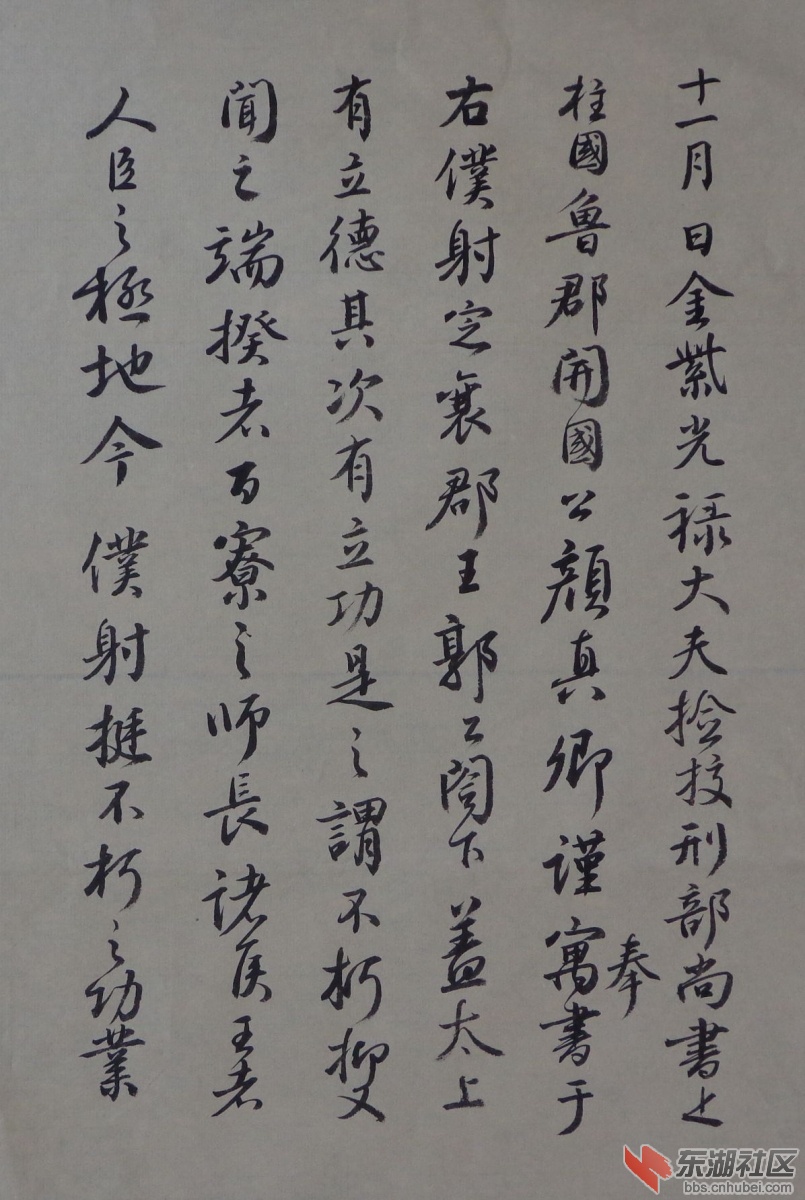 十一月 日金紫光祿大夫撿挍刑部尚書上
柱國魯郡開國公顏真卿謹寓書于
奉
右僕射定襄郡王郭公閤下蓋太上
有立德其次有立功是之謂不朽抑又
聞之端揆者百寮之師長諸侯王者
人臣之極地今僕射挺不朽之功業
东湖社区
bbs.cnhubei.com